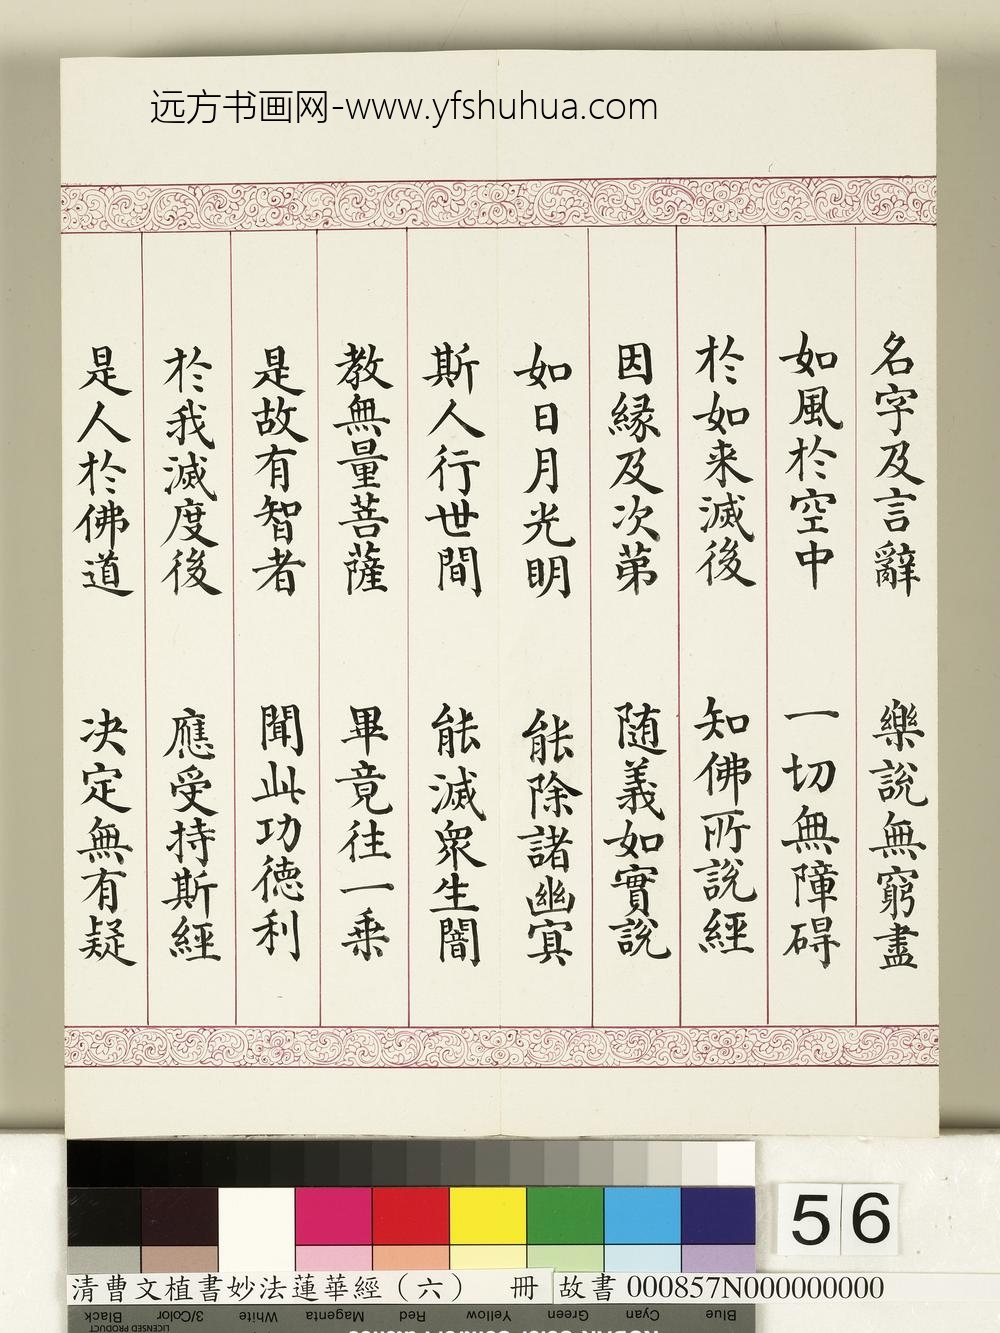 远方书画网-www.yfshuhua.com
名字及言辭 樂說無窮盡
如風於空中 一切無障碍
於如来滅後 知佛所說經
因緣及次第 随義如實說
如日月光明 能除諸幽冥
斯人行世間 能滅衆生闇
教無量菩薩 畢竟往一乗
是故有智者 聞此功德利
於我滅度後 應受持斯經
是人於佛道 决定無有疑
56
清曹文植書妙法蓮華經（六） 冊 故書 000857N000000000
Black 3/Color White Magenta Red Yellow Green Cyan Blue
LICENSED PRODUCT